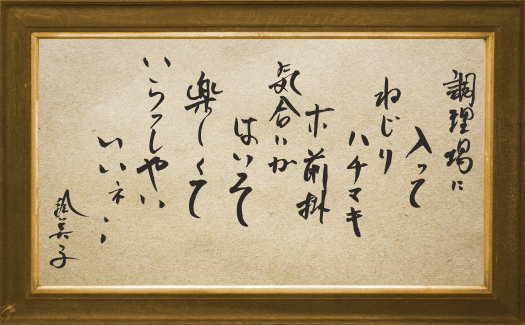 調理場に
入って
ねじり
ハチマキ
前掛
気合いが
はいって
楽しくて
いらっしゃい
いいネ
美子